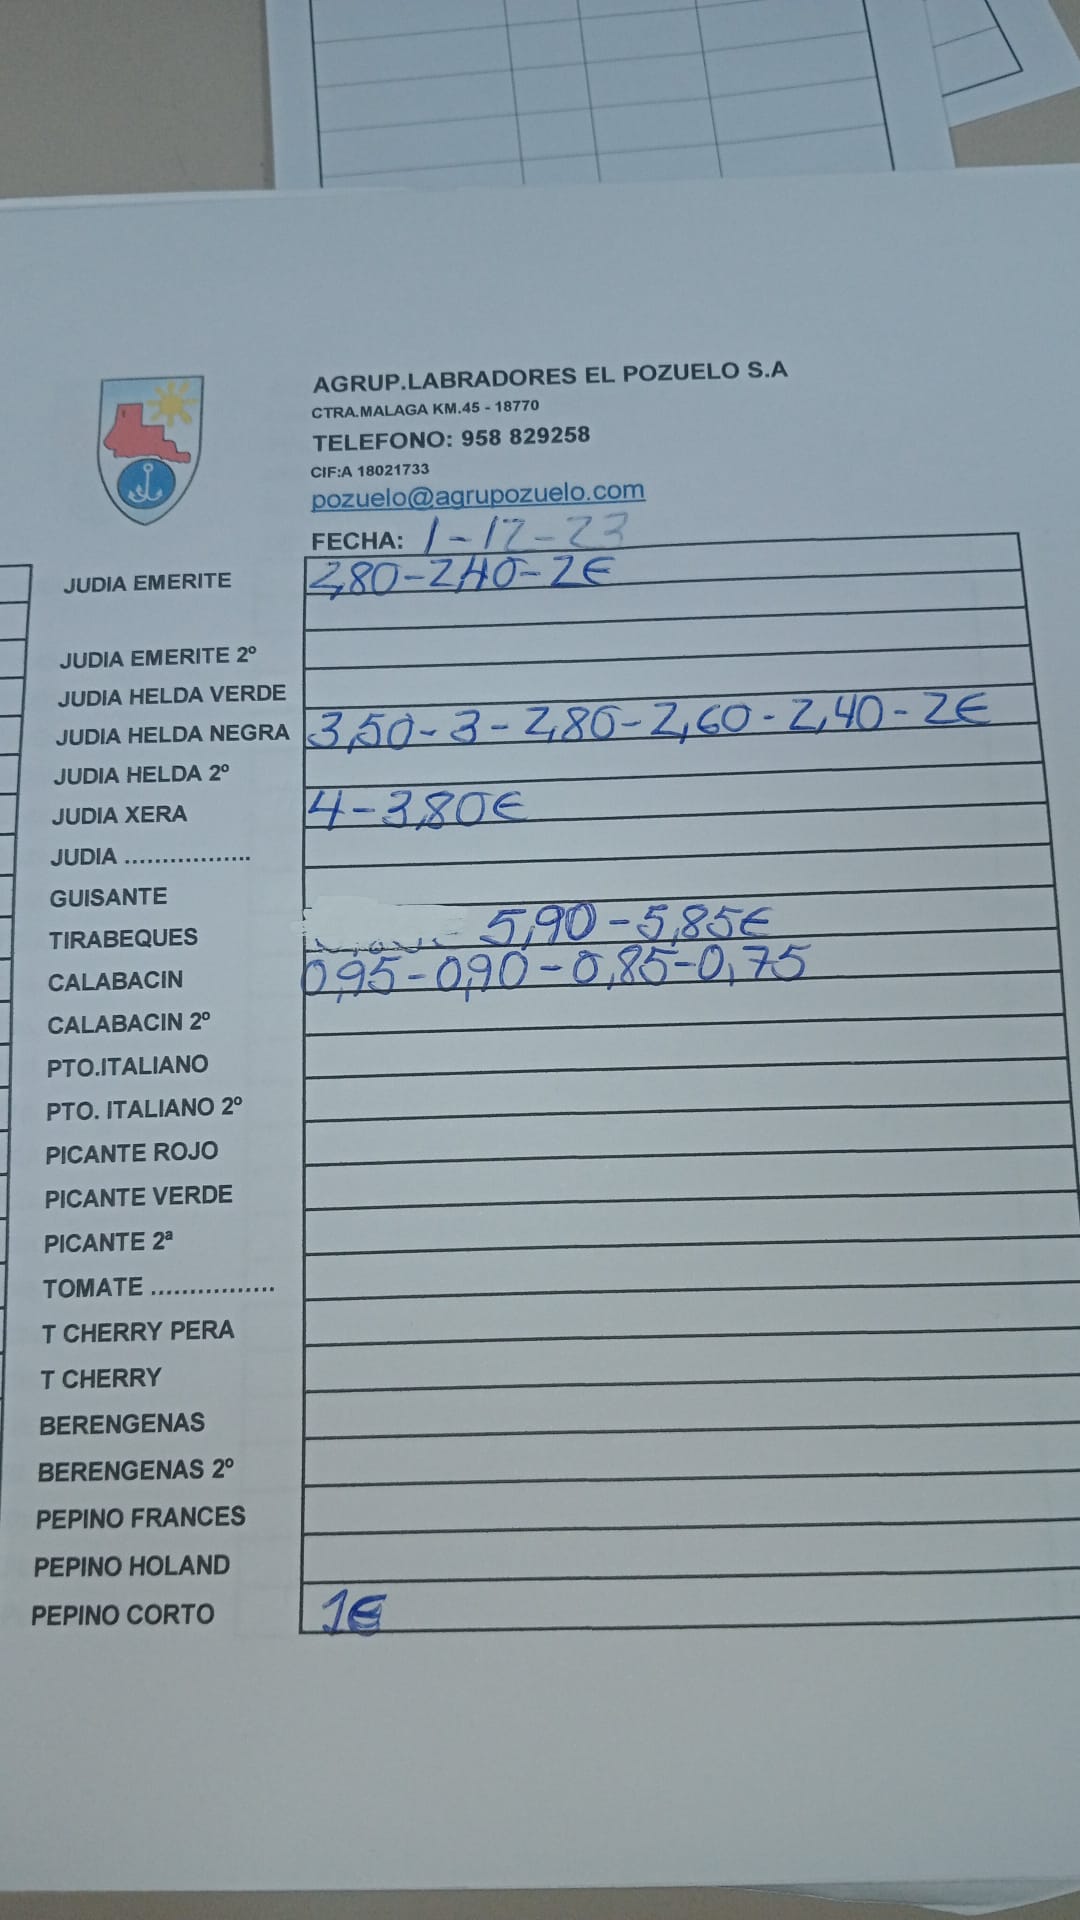 AGRUP.LABRADORES EL POZUELO S.A
CTRA.MALAGA KM.45 - 18770
TELEFONO: 958 829258
CIF:A 18021733
pozuelo@agrupozuelo.com
FECHA: 1-12-23
JUDIA EMERITE 2,80-2,40-2€
JUDIA EMERITE 2º
JUDIA HELDA VERDE
JUDIA HELDA NEGRA 3,50-3-2,80-2,60-2,40-2€
JUDIA HELDA 2º
JUDIA XERA 4-3,80€
JUDIA ..................
GUISANTE
TIRABEQUES 5,90-5,85€
CALABACIN 0,95-0,90-0,85-0,75
CALABACIN 2º
PTO.ITALIANO
PTO. ITALIANO 2º
PICANTE ROJO
PICANTE VERDE
PICANTE 2ª
TOMATE .................
T CHERRY PERA
T CHERRY
BERENGENAS
BERENGENAS 2º
PEPINO FRANCES
PEPINO HOLAND
PEPINO CORTO 1€